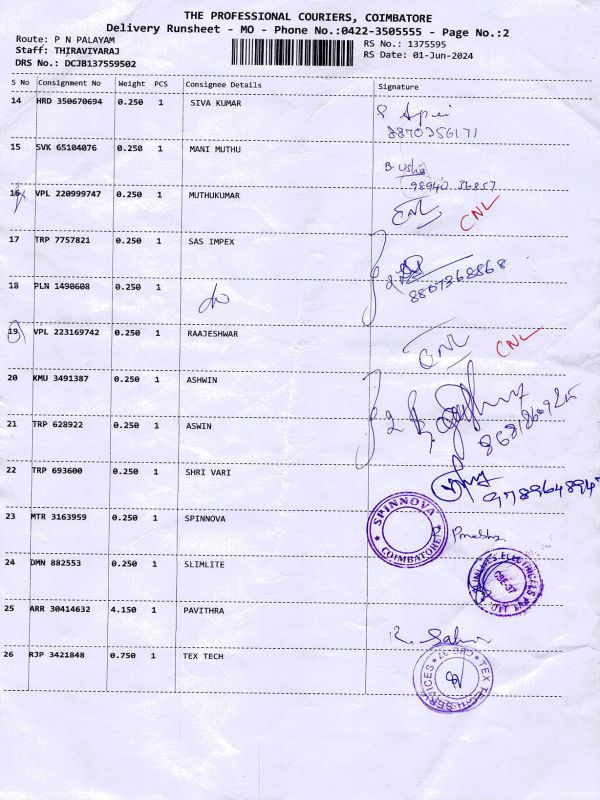 THE PROFESSIONAL COURIERS, COIMBATORE
Delivery Runsheet - MO - Phone No.:0422-3505555 - Page No.:2
Route: P N PALAYAM
Staff: THIRAVIYARAJ
DRS No.: DCJB137559502
RS No.: 1375595
RS Date: 01-Jun-2024
S No Consignment No Weight PCS Consignee Details Signature
14 HRD 350670694 0.250 1 SIVA KUMAR
8870356171
15 SVK 65104076 0.250 1 MANI MUTHU B Usha
98940 36857
16 VPL 220999747 0.250 1 MUTHUKUMAR CNL CNL
17 TRP 7757821 0.250 1 SAS IMPEX
8807368868
18 PLN 1490608 0.250 1 do
19 VPL 223169742 0.250 1 RAAJESHWAR CNL CNL
20 KMU 3491387 0.250 1 ASHWIN
21 TRP 628922 0.250 1 ASWIN
22 TRP 693600 0.250 1 SHRI VARI
23 MTR 3163959 0.250 1 SPINNOVA SPINNOVA COIMBATORE
24 DMN 882553 0.250 1 SLIMLITE CBE-37
25 ARR 30414632 4.150 1 PAVITHRA
26 RJP 3421848 0.750 1 TEX TECH TEX TECH SERVICES CBE-37